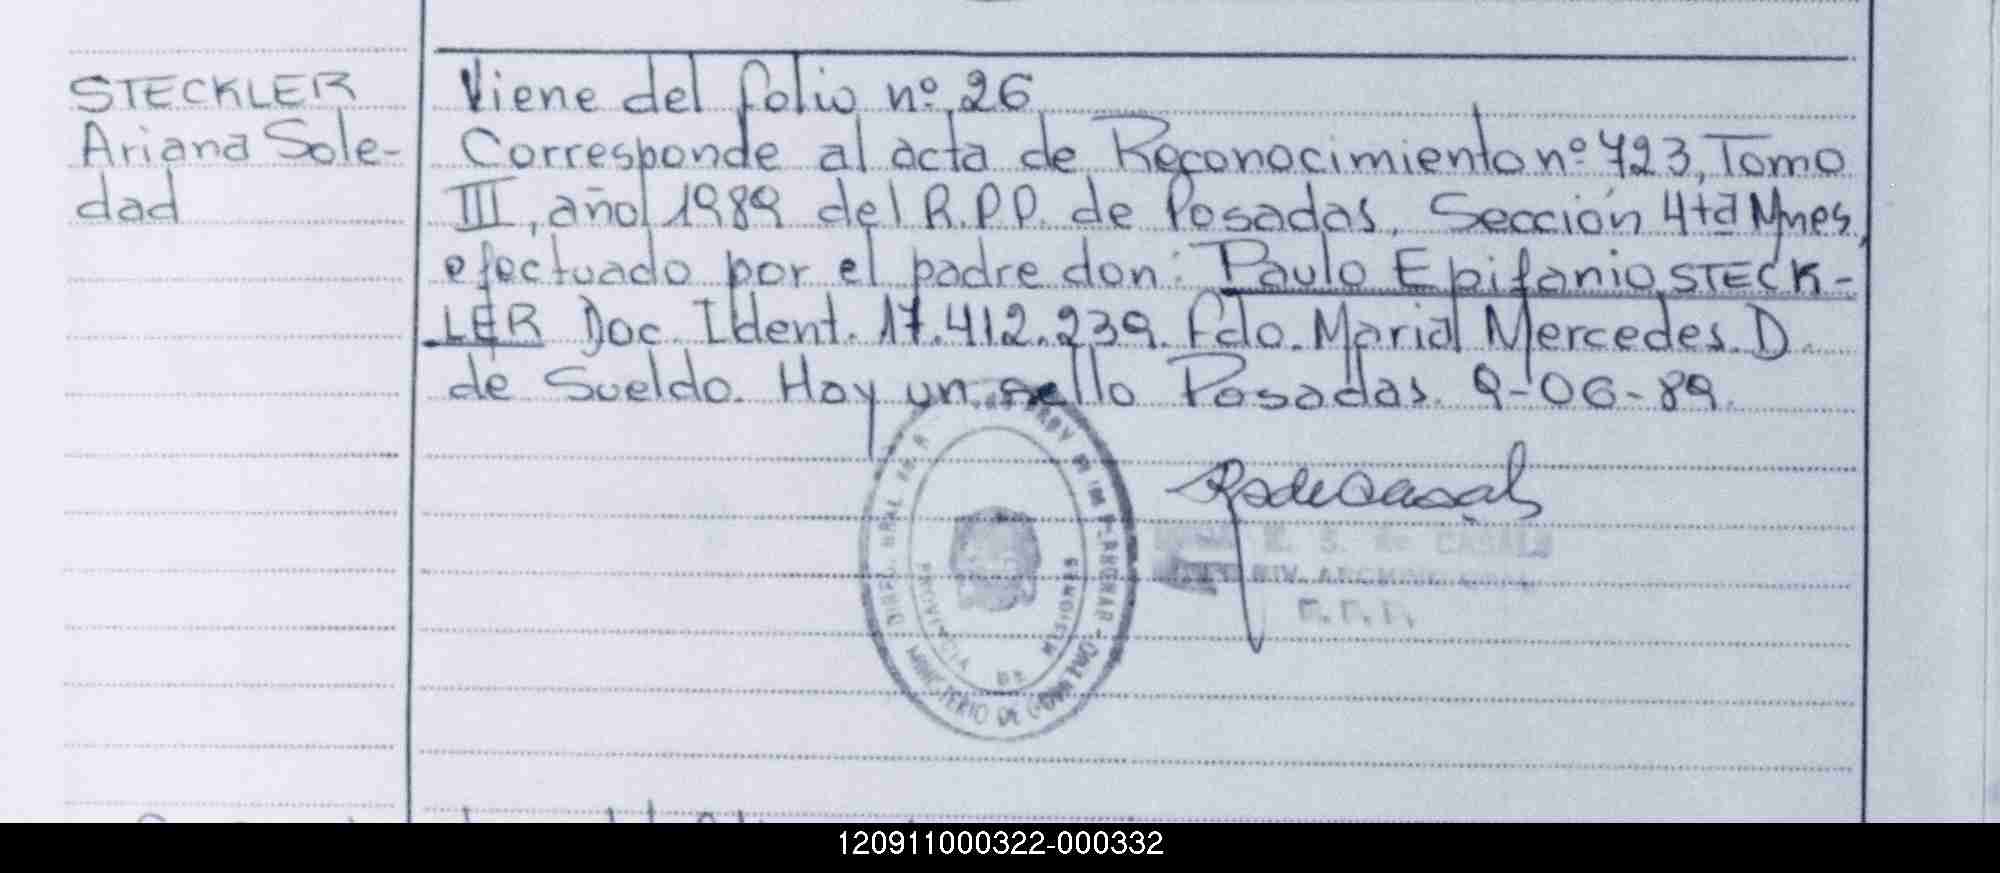 STECKLER
Ariana Sole-
dad
Viene del folio nº 26
Corresponde al acta de Reconocimiento nº 723, Tomo
III, año 1989 del R.P.P. de Posadas, Sección 4ta Mnes,
efectuado por el padre don: Paulo Epifanio STECK-
LER Doc. Ident. 17.412.239. Fdo. Maria Mercedes D.
de Sueldo. Hay un sello Posadas. 9-06-89.
PROVINCIA DE MISIONES
MINISTERIO DE
S. de CASALS
120911000322-000332